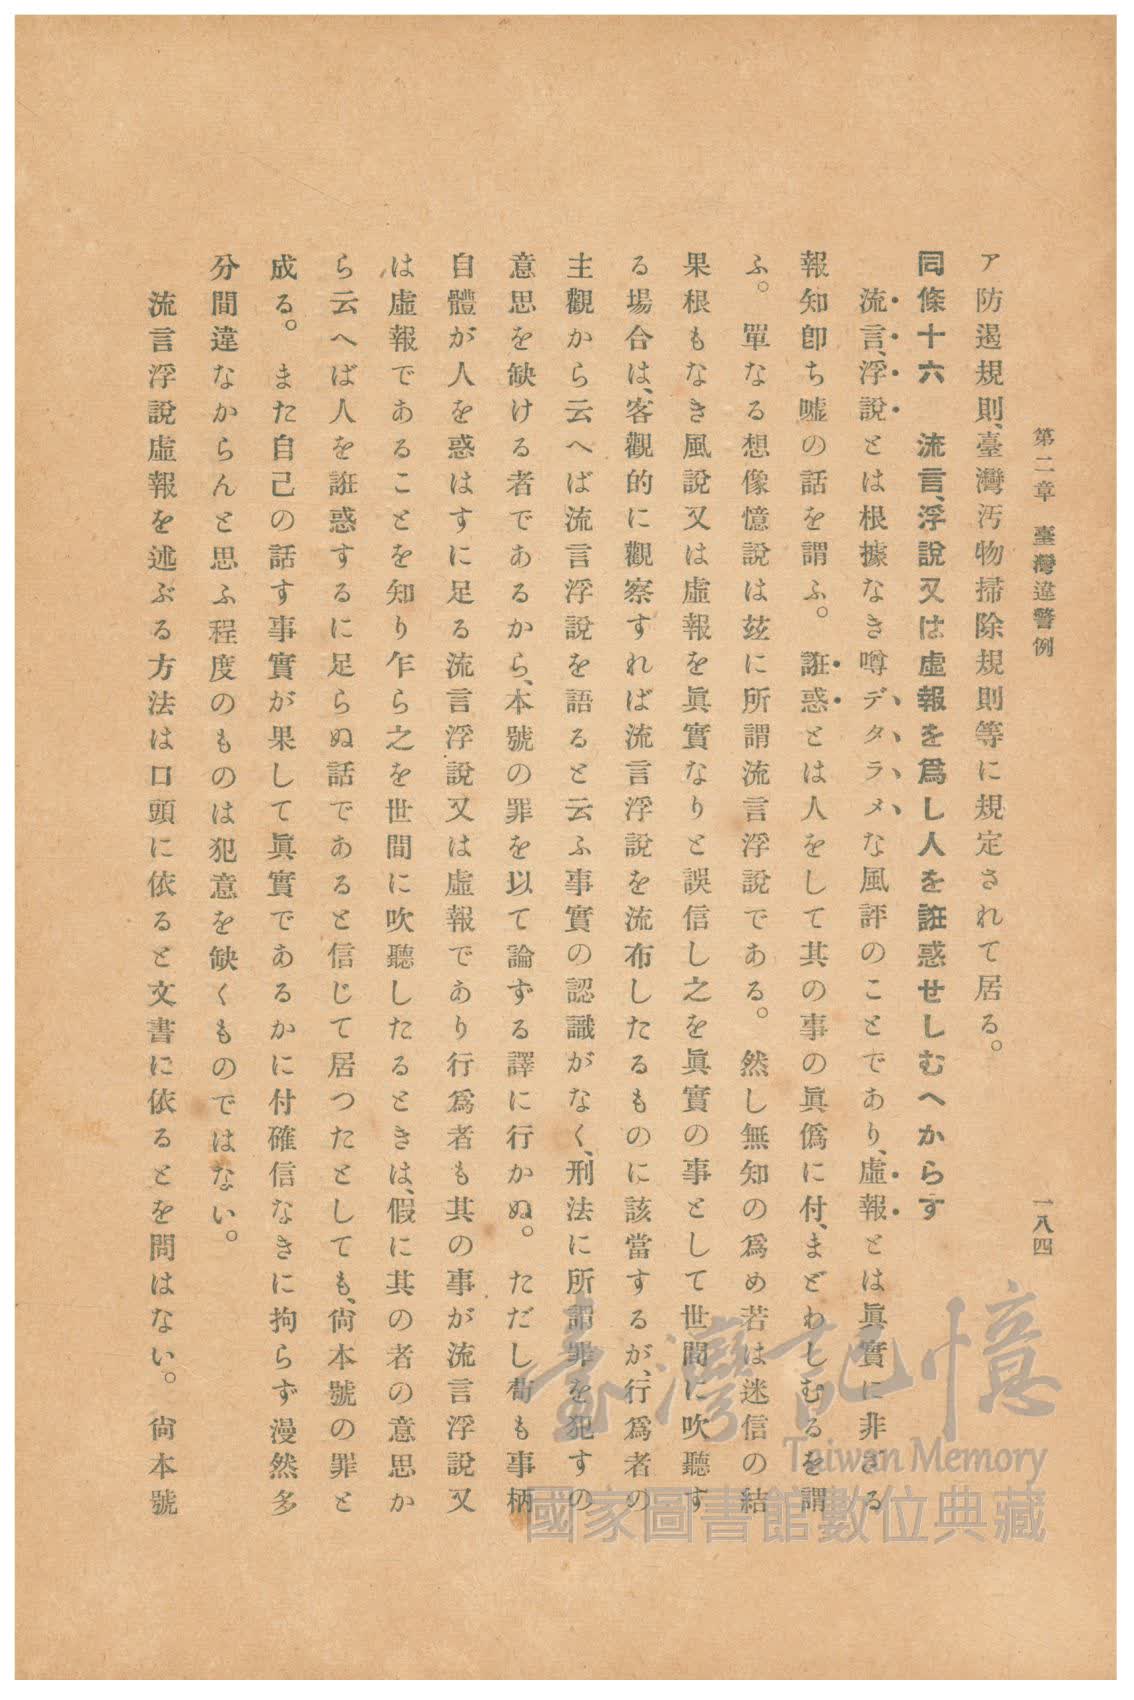 第二章　臺灣違警例　一八四
ア防遏規則、臺灣汚物掃除規則等に規定されて居る。
同條十六　流言、浮說又は虛報を爲し人を誑惑せしむへからす
流言、浮說とは根據なき噂デタラメな風評のことであり、虛報とは眞實に非ざる
報知卽ち噓の話を謂ふ。誑惑とは人をして其の事の眞僞に付、まどわしむるを謂
ふ。單なる想像憶說は玆に所謂流言浮說である。然し無知の爲め若は迷信の結
果根もなき風說又は虛報を眞實なりと誤信し之を眞實の事として世間に吹聽す
る場合は、客觀的に觀察すれば流言浮說を流布したるものに該當するが、行爲者の
主觀から云へば流言浮說を語ると云ふ事實の認識がなく、刑法に所謂罪を犯すの
意思を缺ける者であるから、本號の罪を以て論ずる譯に行かぬ。ただし苟も事柄
自體が人を惑はすに足る流言浮說又は虛報であり行爲者も其の事が流言浮說又
は虛報であることを知り乍ら之を世間に吹聽したるときは、假に其の者の意思か
ら云へば人を誑惑するに足らぬ話であると信じて居つたとしても、尙本號の罪と
成る。また自己の話す事實が果して眞實であるかに付確信なきに拘らず漫然多
分間違なからんと思ふ程度のものは犯意を缺くものではない。
流言浮說虛報を述ぶる方法は口頭に依ると文書に依るとを問はない。尙本號
臺灣記憶
Taiwan Memory
國家圖書館數位典藏